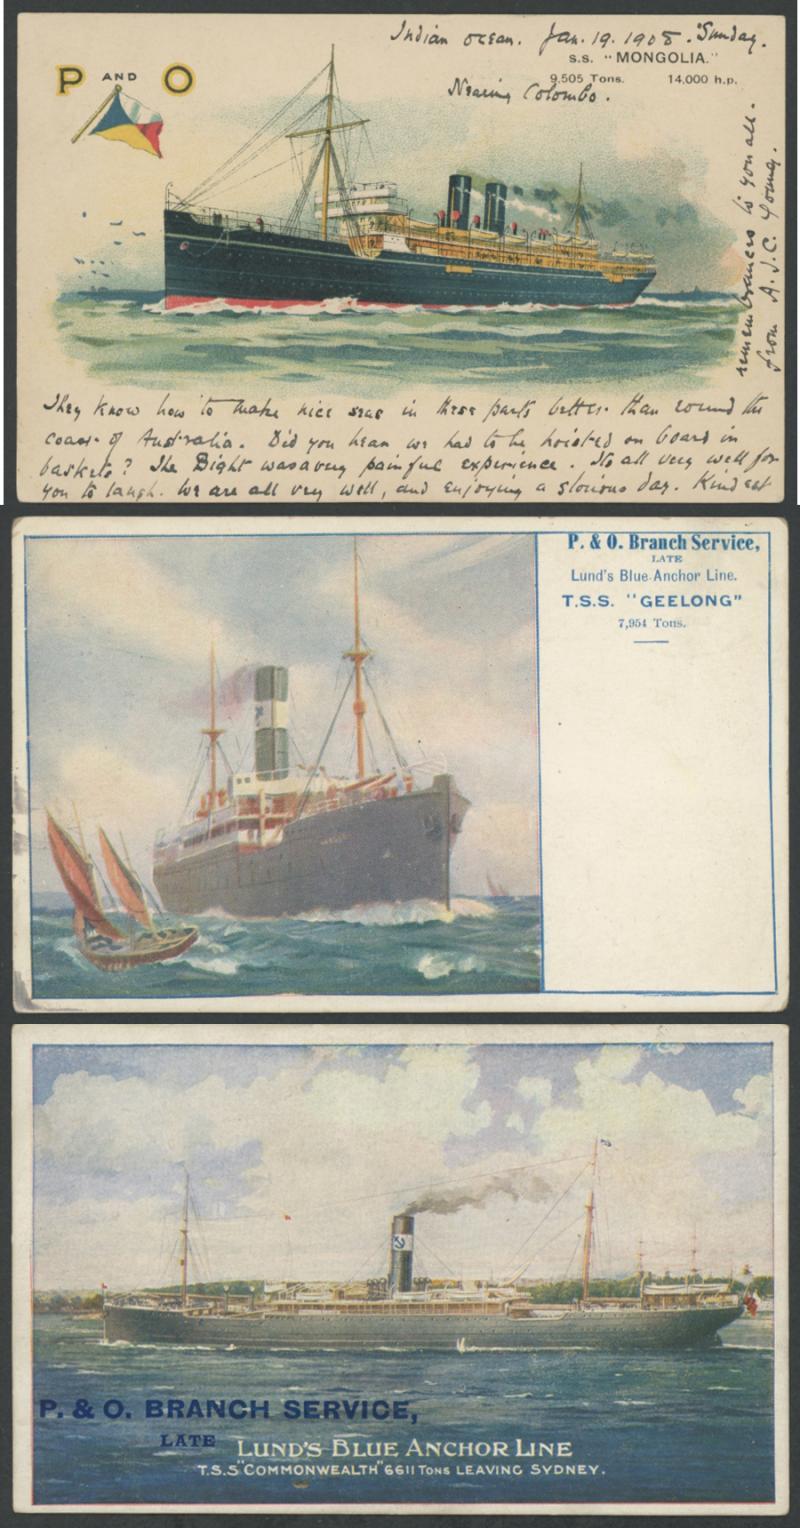 Indian ocean. Jan. 19. 1908. Sunday.
P AND O
S.S. "MONGOLIA."
9,505 Tons. 14,000 h.p.
Nearing Colombo.
They know how to make nice seas in these parts better than round the
coast of Australia. Did you hear we had to be hoisted on board in
baskets? The Bight was a very painful experience. Its all very well for
you to laugh. We are all very well, and enjoying a glorious day. Kindest
remembrances to you all.
from A. J. C. Young.
P. & O. Branch Service,
LATE
Lund's Blue Anchor Line.
T.S.S. "GEELONG"
7,954 Tons.
P. & O. BRANCH SERVICE,
LATE LUND'S BLUE ANCHOR LINE
T.S.S "COMMONWEALTH" 6611 TONS LEAVING SYDNEY.